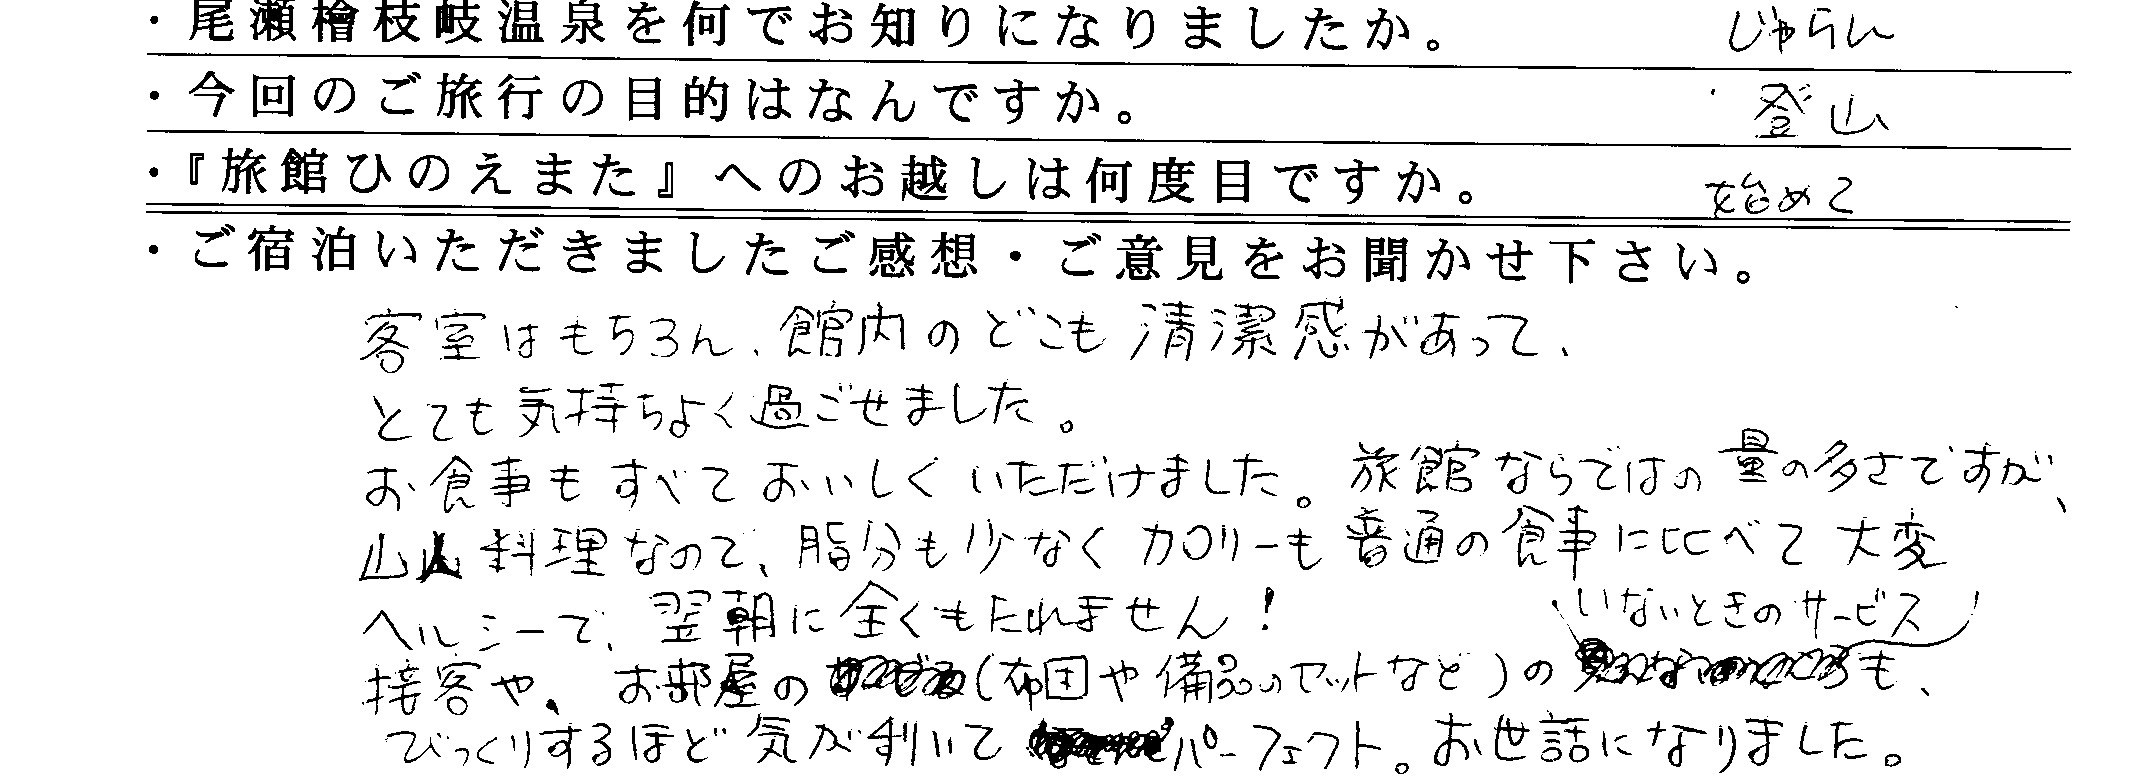 ・尾瀬檜枝岐温泉を何でお知りになりましたか。 じゃらん
・今回のご旅行の目的はなんですか。 登山
・『旅館ひのえまた』へのお越しは何度目ですか。 始めて
・ご宿泊いただきましたご感想・ご意見をお聞かせ下さい。
客室はもちろん、館内のどこも清潔感があって、
とても気持ちよく過ごせました。
お食事もすべておいしくいただけました。旅館ならではの量の多さですが、
山人料理なので、脂分も少なくカロリーも普通の食事に比べて大変
ヘルシーで、翌朝に全くもたれません！
いないときのサービス
接客や、お部屋の(布団や備品のセットなど)のも、
びっくりするほど気が利いてパーフェクト。お世話になりました。